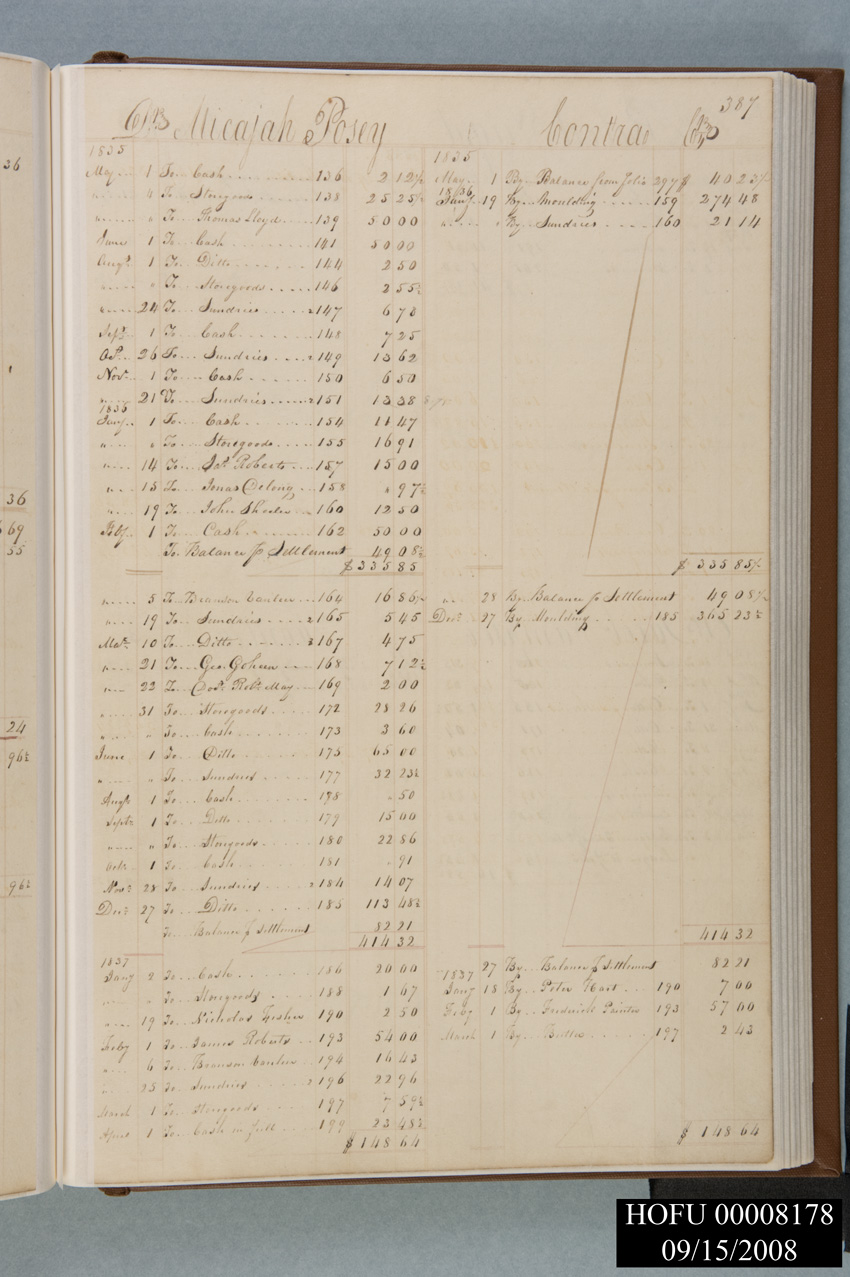 387
Dr Micajah Posey Contra Cr
1835
May 1 To Cash 136 2 12½
" 4 To Storegoods 138 25 25½
" " To Thomas Lloyd 139 50 00
June 1 To Cash 141 50 00
Augt 1 To Ditto 144 2 50
" " To Storegoods 146 2 55½
" 24 To Sundries 147 6 70
Sept 1 To Cash 148 7 25
Oct 26 To Sundries 149 13 62
Novr 1 To Cash 150 6 50
" 21 To Sundries 151 13 38
1836
Jany 1 To Cash 154 11 47
" " To Storegoods 155 16 91
" 14 To Jas Roberts 157 15 00
" 15 To Jonas Delong 158 " 97½
" 19 To John Sheeler 160 12 50
Feby 1 To Cash 162 50 00
To Balance pr Settlement 49 08½
$ 335 85
" 5 To Branson 164 16 86½
" 19 To Sundries 165 5 45
Mar 10 To Ditto 167 4 75
" 21 To Geo. Goheen 168 7 12½
" 22 To Robt May 169 2 00
" 31 To Storegoods 172 28 26
" " To Cash 173 3 60
June 1 To Ditto 175 65 00
" " To Sundries 177 32 23½
Augt 1 To Cash 178 " 50
Septr 1 To Ditto 179 15 00
" " To Storegoods 180 22 86
Octr 1 To Cash 181 " 91
Novr 28 To Sundries 184 14 07
Decr 27 To Ditto 185 113 48½
To Balance pr Settlement 82 21
414 32
1837
Jany 2 To Cash 186 20 00
" " To Storegoods 188 1 67
" 19 To Nicholas 190 2 50
Feby 1 To James Roberts 193 54 00
" 6 To Branson 194 16 43
" 25 To Sundries 196 22 96
March 1 To Storegoods 197 7 59½
April 1 To Cash in full 199 23 48½
$ 148 64
1835
May 1 By Balance from folio 297 $ 40 23½
1836
Jany 19 By Moulding 159 274 48
" " By Sundries 160 21 14
$ 335 85½
" 28 By Balance pr Settlement 49 08½
Decr 27 By Moulding 185 365 23½
414 32
27 By Balance pr Settlement 82 21
1837
Jany 18 By Peter Hart 190 7 00
Feby 1 By Frederick Painter 193 57 00
March 1 By Butter 197 2 43
$ 148 64
36
36
69
55
24
96½
96½
HOFU 00008178
09/15/2008